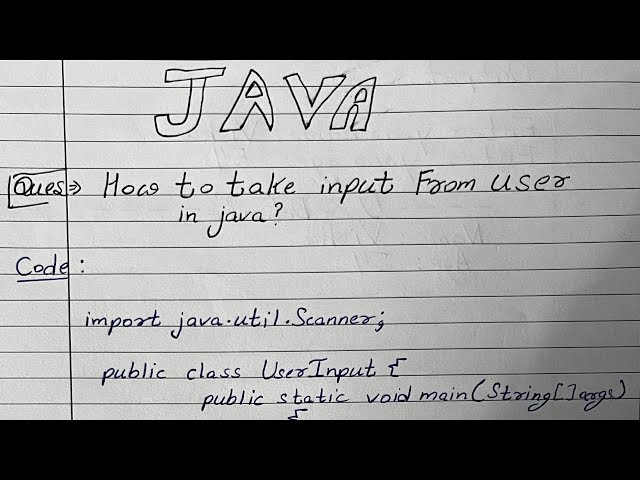 JAVA
Ques⇒ How to take input From user
in java?
Code :
import java.util.Scanner;
public class UserInput {
public static void main(String[]args)
{